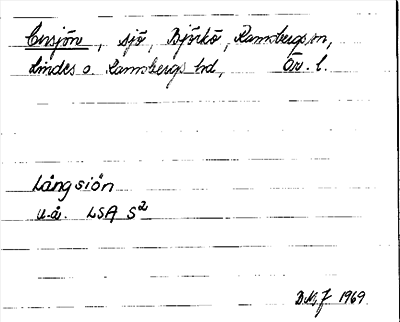 Ensjön, sjö, Björkö, Ramsbergs sn,
Lindes o. Ramsbergs hd, Ör. l.
Långsiön
u.å. LSA S²
D.M.J 1969